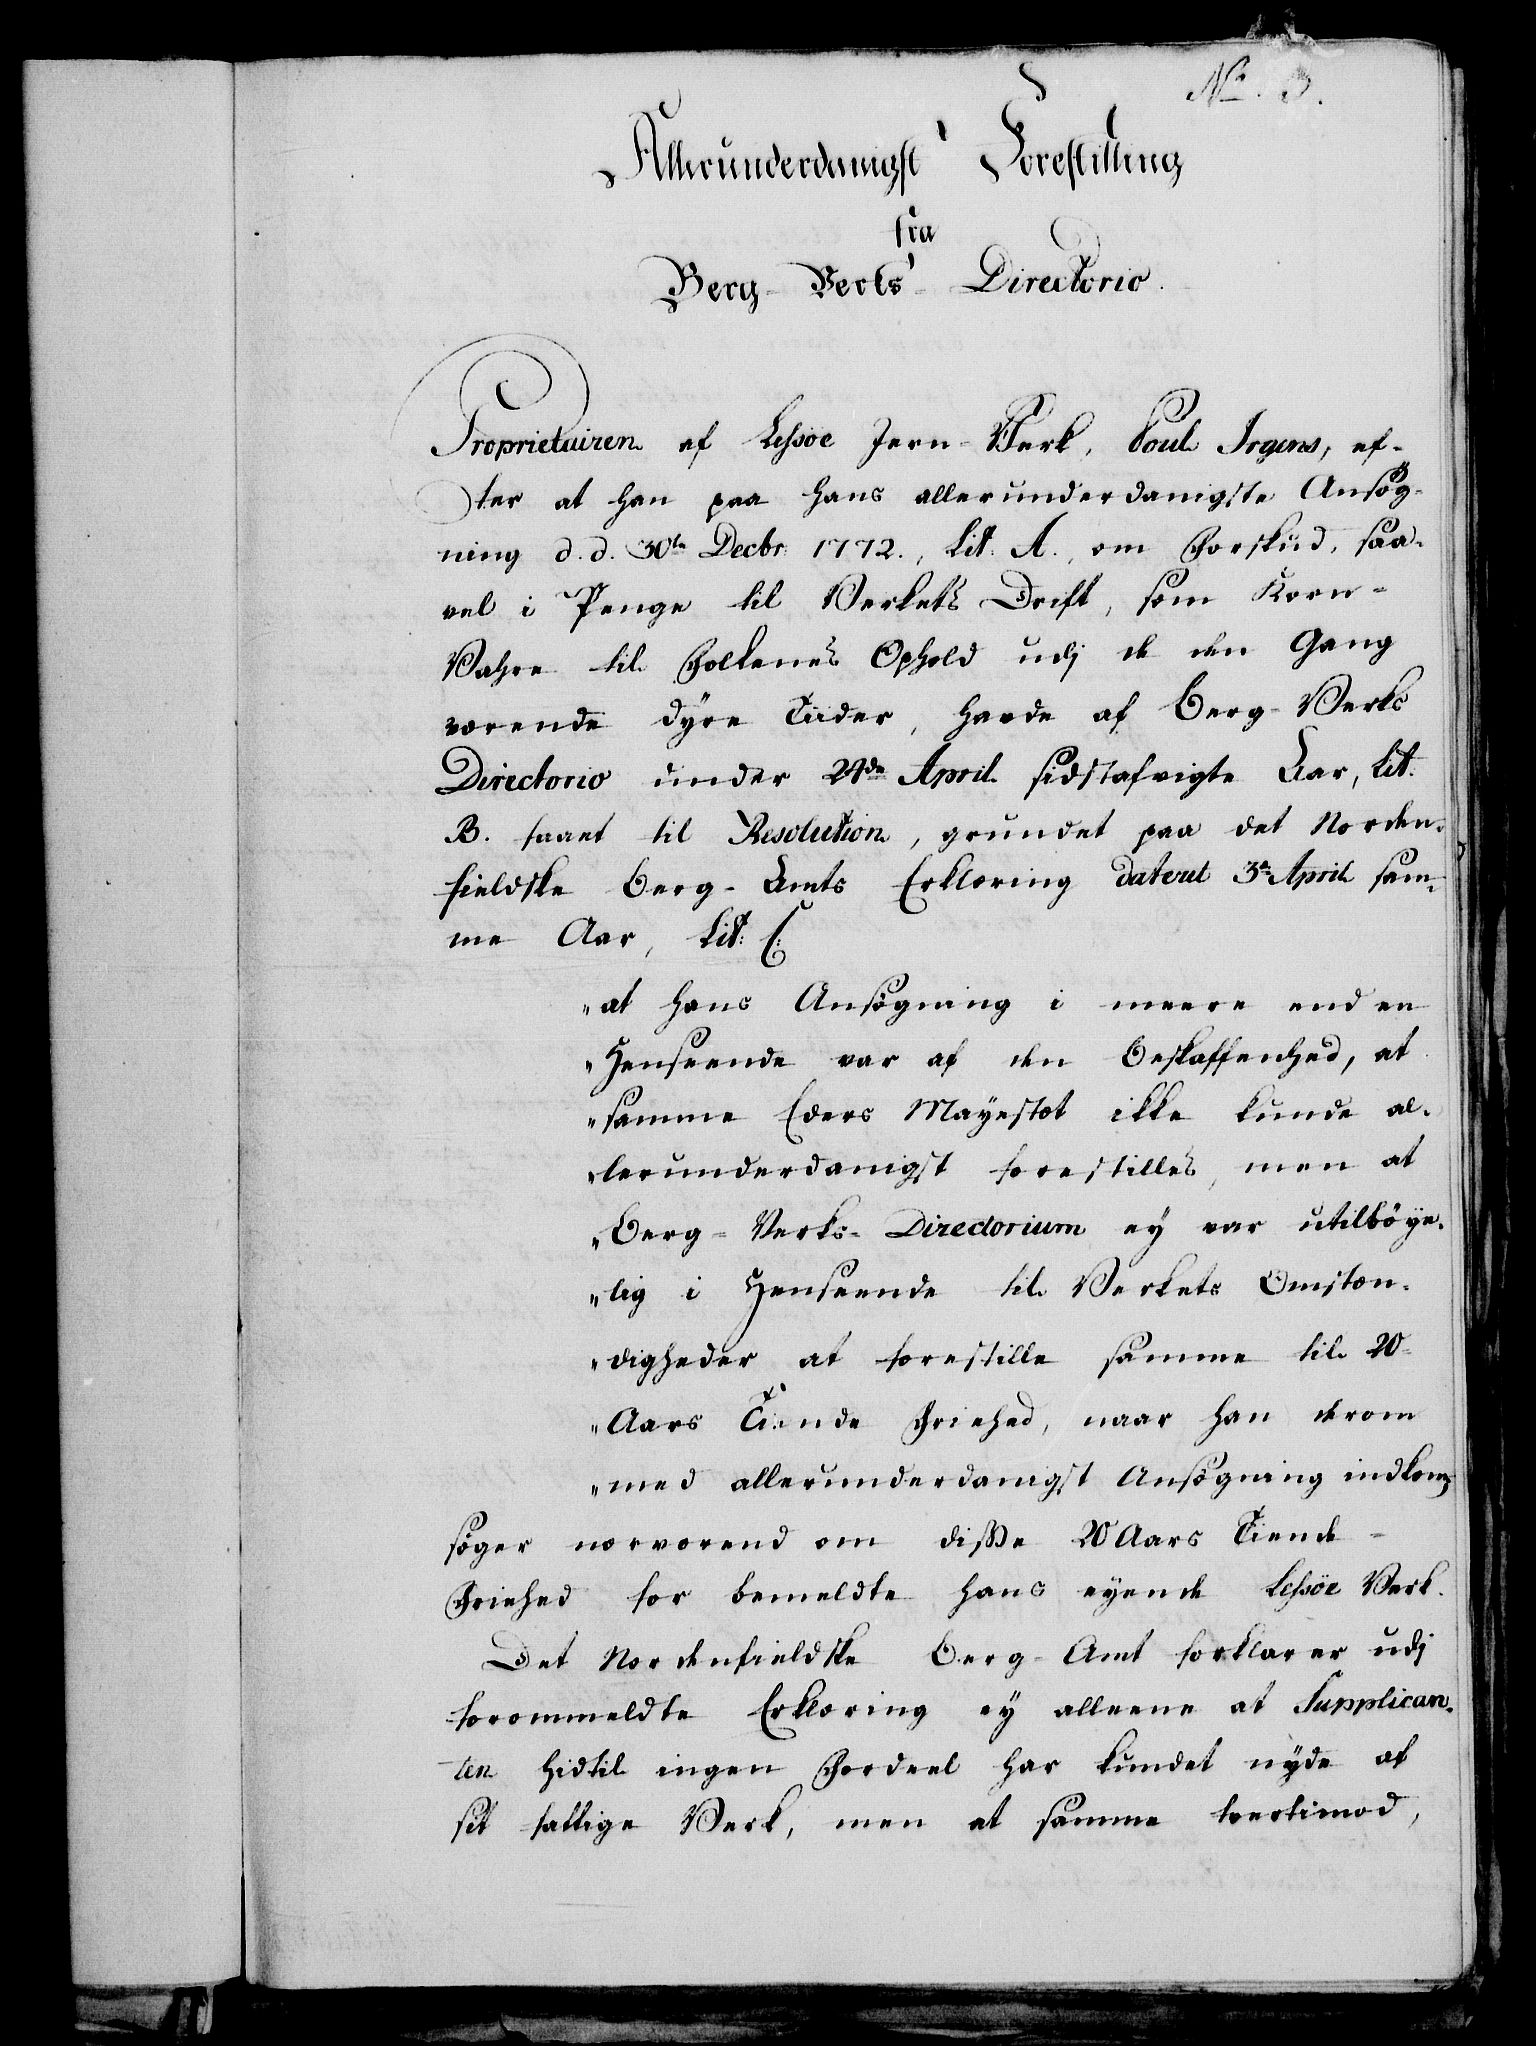 No. 3.
Allerunderdanigst Forestilling
fra
Berg-Verks Directorio.
Proprietairen af Lessøe Jern-Verk, Poul Irgens, ef-
ter at han paa hans allerunderdanigste Ansøg-
ning d. d. 30te Decbr: 1772., Lit. A., om Forskud, saa-
vel i Penge til Verkets Drift, som Korn-
Vahre til Folkenes Ophold udj de den Gang
værende dyre Tiider, havde af Berg-Verks
Directorio under 24de April sidstafvigte Aar, Lit.
B. faaet til Resolution, grundet paa det Norden-
fieldske Berg-Amts Erklæring dateret 3de April sam-
me Aar, Lit: C:
"at hans Ansøgning i meere end en
"Henseende var af den Beskaffenhed, at
"samme Eders Mayestæt ikke kunde al-
"lerunderdanigst forestilles, men at
"Berg-Verks-Directorium ey var utilbøye-
"lig i Henseende til Verkets Omstæn-
"digheder at forestille samme til 20-
"Aars Tiende Friehed, naar han derom
"med allerunderdanigst Ansøgning indkom,
søger nærværend om disse 20 Aars Tiende-
Friehed for bemeldte hans eyende Lessøe Verk.
Det Nordenfieldske Berg-Amt forklarer udj
forommeldte Erklæring ey alleene at Supplican-
ten hidtil ingen Fordeel har kundet nyde af
sit fattige Verk, men at samme tvertimod,